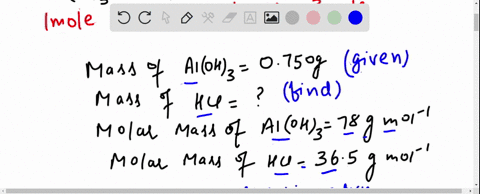 1mole
Mass of Al(OH)3 = 0.750g (given)
Mass of HCl = ? (find)
Molar Mass of Al(OH)3 = 78 g mol-1
Molar Mass of HCl = 36.5 g mol-1